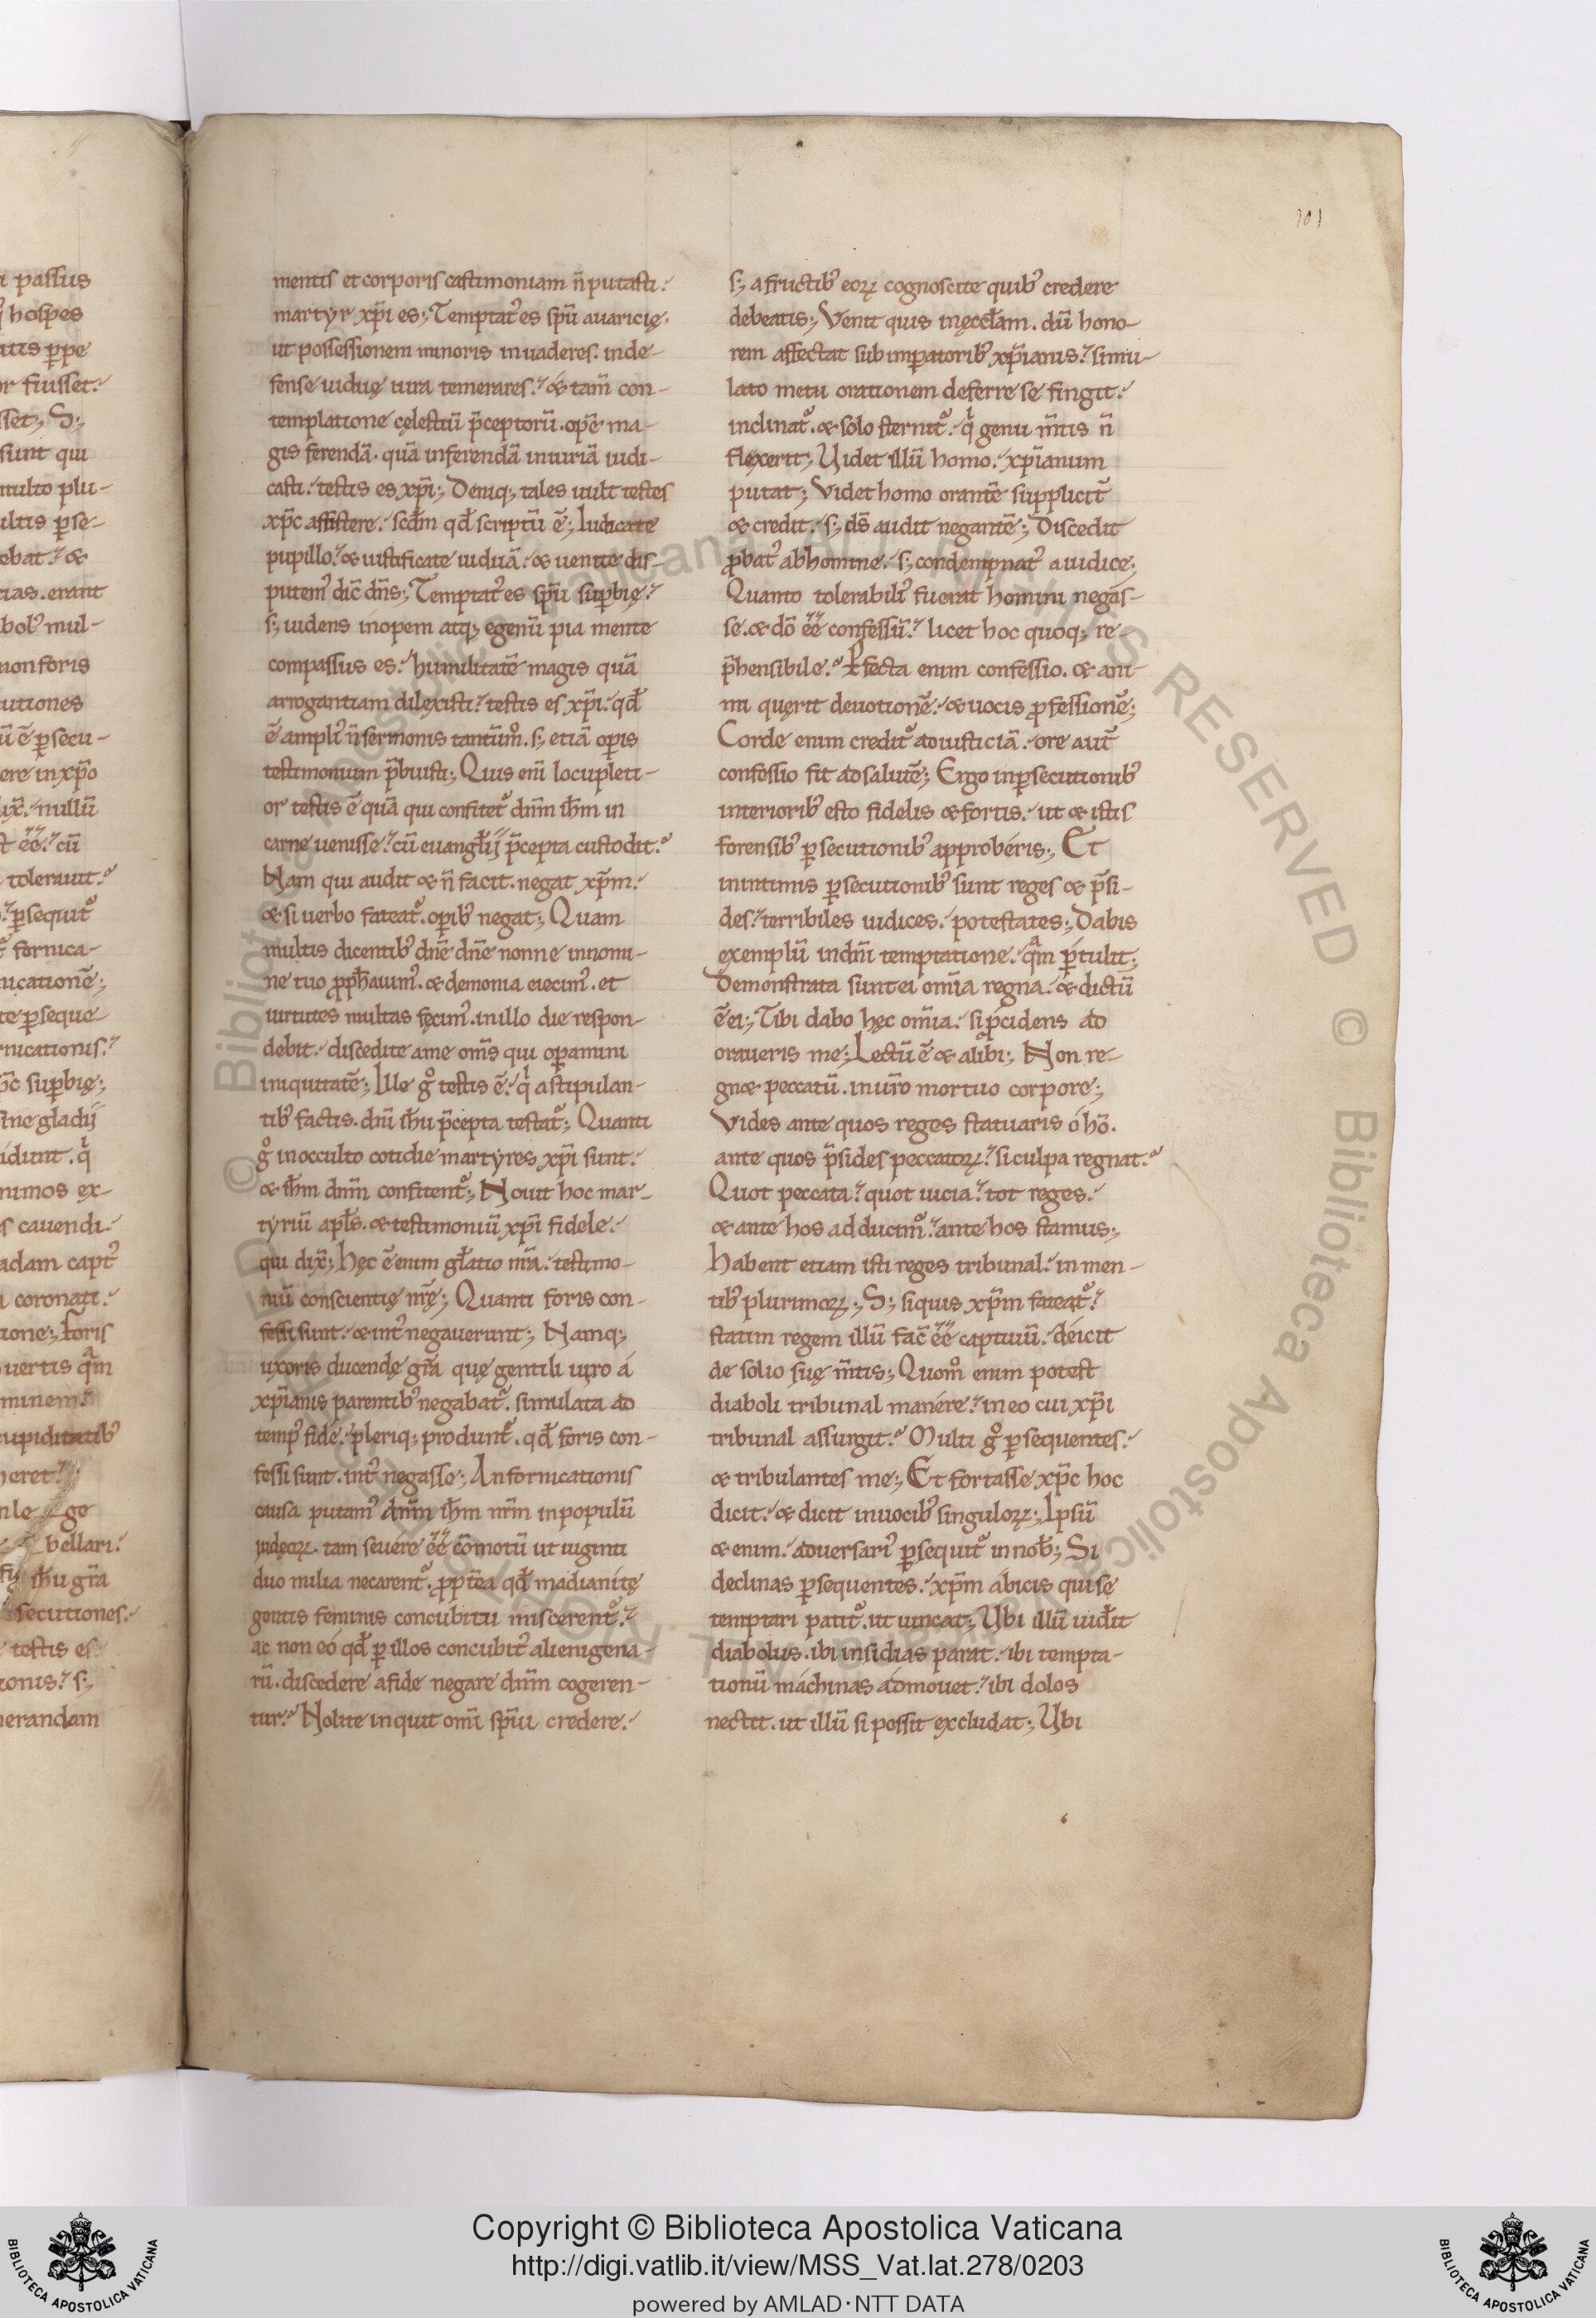 101
i passus
hospes
utis p̲pe
or fuisset.
sset; S;
sunt qui
multo plu-
ultis p̲se-
ebat. &
cias. erant
bol᾽ mul-
non foris
cutiones
ū ē p̲secu-
ere in xp̄o
ix̄. nullū
t ēē. cū
tolerauit.
p̲sequit᷑
fornica-
nicationē;
te p̲seque-
rnicationis.
sup̲bię;
ine gladij
idunt. q̍
nimos ex-
s cauendi.
adam capt᾽
i coronati.
ione; foris
uertis qᵃm
minem.
cupiditatib᾽
heret.
nle ge
bellari.
ih̄u gr̄a
secutiones.
testis es
ionis. s;
nerandam
mentis et corporis castimoniam n̄ putasti.
martyr xp̄i es; Temptat᾽ es sp̄u auaricię.
ut possessionem minoris inuaderes. inde-
fense uiduę iura temerares. & tam̄ con-
templatione cęlestiū p̄ceptorū. op̄e ma-
gis ferendā. quā inferendā iniuriā iudi-
casti. testis es xp̄i; Deniq; tales uult testes
xp̄c assistere. scd̄m qd̄ scriptū ē; Iudicate
pupillo. & iustificate uiduā. & uenite dis-
putem᾽ dic̄ dn̄s; Temptat᾽ es sp̄u sup̲bię.
s; uidens inopem atq; egenū pia mente
compassus es. humilitatē magis quā
arrogantiam dilexisti. testis es xp̄i. qd̄
ē ampli᾽ n̄ sermonis tantūmᵒ. s; etiā op̲is
testimonium p̄buisti; Quis eni̅ locupleti-
or testis ē quā qui confitet᷑ dn̄m ih̄m in
carne uenisse. cū euangl̄ij p̄cepta custodit.
Nam qui audit & n̄ facit. negat xp̄m.
& si uerbo fateat᷑. op̲ib᾽ negat; Quam
multis dicentib᾽ dn̄e dn̄e nonne in nomi-
ne tuo p̲ph̄auim᾽. & demonia eiecim᾽. et
uirtutes multas fecim᾽. in illo die respon-
debit. discedite a me om̄s qui op̲amini
iniquitatē; Ille gᵒ testis ē. q̍ astipulan-
tib᾽ factis. dn̄i ih̄u p̄cepta testat᷑; Quanti
gᵒ in occulto cotidie martyres xp̄i sunt.
& ih̄m dn̄m confitent᷑; Nouit hoc mar-
tyriū apl̄s. & testimoniū xp̄i fidele.
qui dix̄; hęc ē enim gl̄atio nr̄a. testimo-
niū conscientię nr̄ę; Quanti foris con-
fessi sunt. & int᾽ negauerunt; Namq;
uxoris ducendę gr̄a quę gentili uiro á
xp̄ianis parentib᾽ negabat᷑. simulata ad
temp᾽ fide. pleriq; produnt᷑. qd̄ foris con-
fessi sunt. int᾽ negasse; An fornicationis
causa putam᾽ dn̄m ih̄m nr̄m in populū
iudęoꝝ. tam seuére ēē cōmotū ut uiginti
duo milia necarent᷑. p̲pt̄ea qd̄ madianitę
gentis feminis concubitu miscerent᷑.
ac non eó qd̄ p̲ illos concubit᾽ alienigena-
rū. discedere a fide negare dn̄m cogeren-
tur. Nolite inquit om̄i sp̄iu credere.
s; a fructib᾽ eoꝝ cognoscite quib᾽ credere
debeatis; Venit quis in ęccl̄am. dū hono-
rem affectat sub imp̲atorib᾽ xp̄ianis. simu-
lato metu orationem deferre se fingit.
inclinat᷑. & solo sternit᷑. q̍ genu m̄tis n̄
flexerit; Uidet illū homo. xp̄ianum
putat; Videt homo orantē suppliciť
& credit. s; ds̄ audit negantē; Discedit
p̲bat᾽ ab homine. s; condempnat᾽ a iudice;
Quanto tolerabili᾽ fuerat homini negás-
se. & dō ēē confessū. licet hoc quoq; re-
p̄hensibile. P̲fecta enim confessio. & ani-
mi quęrit deuotionē. & uocis p̲fessionē;
Corde enim credit᷑ ad iusticiā. ore aut̄
confessio fit ad salutē; Ergo in p̲secutionib᾽
interiorib᾽ esto fidelis & fortis. ut & istis
forensib᾽ p̲secutionib᾽ approbéris; Et
in intimis p̲secutionib᾽ sunt reges & p̄si-
des. terribiles iudices. potestates; Dabis
exemplū in dn̄i temptatione. qᵃm p̲tulit;
Demonstrata sunt ei om̄ia regna. & dictū
ē ei; Tibi dabo hęc om̄ia. si p̲cidens ad
oraueris me; Lectū ē & alibi; Non re-
gn& peccatū. in ur̄o mortuo corpore;
Vides ante quos reges statuaris ó hō.
ante quos p̄sides peccatoꝝ. si culpa regnat.
Quot peccata. quot uicia. tot reges.
& ante hos adducimᵒ. ante hos stamus;
Habent etiam isti reges tribunal. in men-
tib᾽ plurimoꝝ; S; siquis xp̄m fateat᷑.
statim regem illū fac̄ ēē captiuū. deicit
de solio suę m̄tis; Quomᵒ enim potest
diaboli tribunal manére. in eo cui xp̄i
tribunal assurgit. Multi gᵒ p̲sequentes.
& tribulantes me; Et fortasse xp̄c hoc
dicit. & dicit in uocib᾽ singuloꝝ; Ipsū
& enim. aduersari᾽ p̲sequit᷑ in nob̄; Si
declinas p̲sequentes. xp̄m abicis qui se
temptari patit᷑. ut uincat; Ubi illū uid̄it
diabolus. ibi insidias parat. ibi tempta-
tionū máchinas admouet. ibi dolos
nectit. ut illū si possit excludat; Ubi
© Biblioteca Apostolica Vaticana ALL RIGHTS RESERVED © Biblioteca Apostolica Vaticana ALL RIGHTS RESERVED
Copyright © Biblioteca Apostolica Vaticana
http://digi.vatlib.it/view/MSS_Vat.lat.278/0203
powered by AMLAD·NTT DATA
BIBLIOTECA APOSTOLICA VATICANA
BIBLIOTECA APOSTOLICA VATICANA